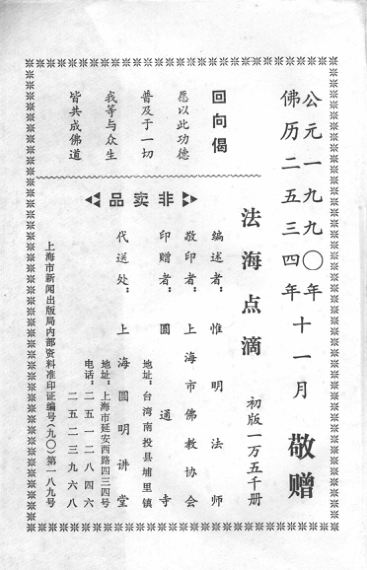 公元一九九〇年
佛历二五三四年
十一月 敬赠
回向偈
愿以此功德
普及于一切
我等与众生
皆共成佛道
法海点滴 初版一万五千册
非卖品
编述者：惟明法师
敬印者：上海市佛教协会
印赠者：圓通寺
地址：台湾南投县埔里镇
代送处：上海圓明讲堂
地址：上海市延安西路四三四号
电话：二五一二八四六
二五二三九六八
上海市新闻出版局内部资料准印证编号（九〇）第一八九号